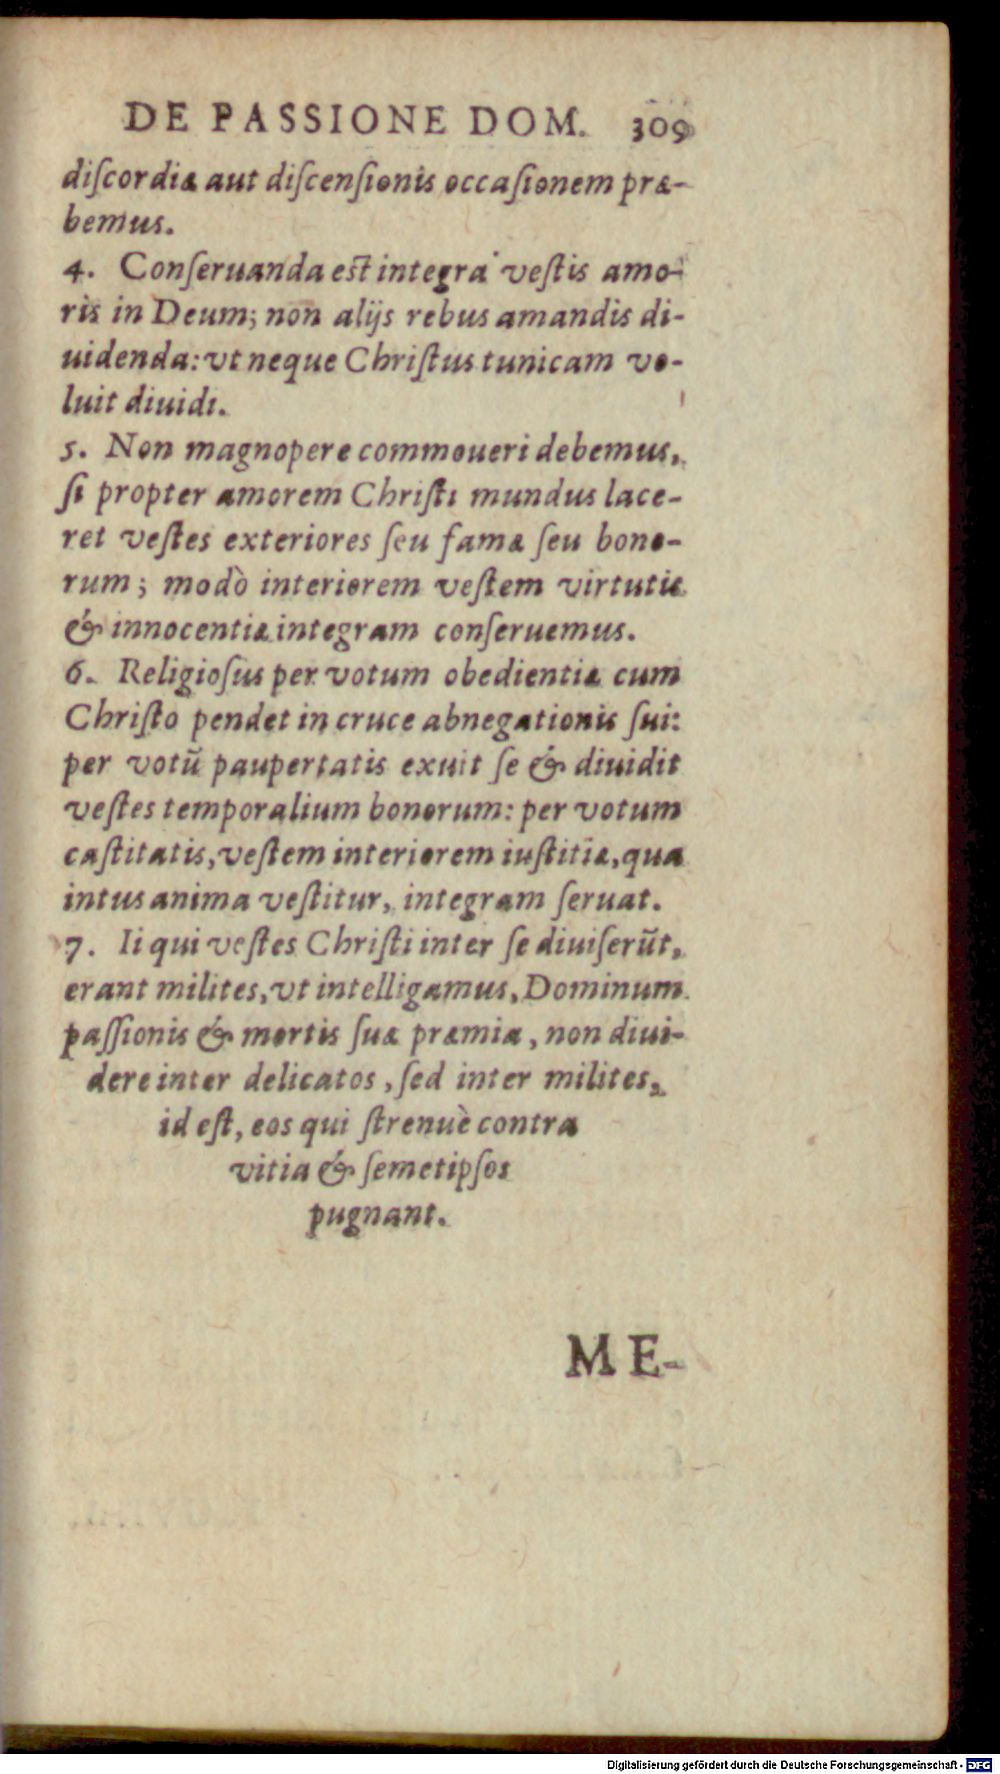 DE PASSIONE DOM. 309
diſcordiæ aut diſcenſionis occaſionem præ-
bemus.
4. Conſeruanda est integra vestis amo-
ris in Deum; non alijs rebus amandis di-
uidenda: vt neque Chriſtus tunicam vo-
luit diuidi.
5. Non magnopere commoueri debemus,
ſi propter amorem Chriſti mundus lace-
ret veſtes exteriores ſeu famæ ſeu bono-
rum; modò interiorem veſtem virtutis
& innocentiæ integram conſeruemus.
6. Religioſus per votum obedientiæ cum
Chriſto pendet in cruce abnegationis ſui:
per votū paupertatis exuit ſe & diuidit
veſtes temporalium bonorum: per votum
caſtitatis, veſtem interiorem iuſtitiæ, qua
intus anima veſtitur, integram ſeruat.
7. Ii qui veſtes Chriſti inter ſe diuiſerūt,
erant milites, vt intelligamus, Dominum
paſſionis & mortis ſuæ præmia, non diui-
dere inter delicatos, ſed inter milites,
id eſt, eos qui ſtrenuè contra
vitia & ſemetipſos
pugnant.
ME-
Digitalisierung gefördert durch die Deutsche Forschungsgemeinschaft - DFG